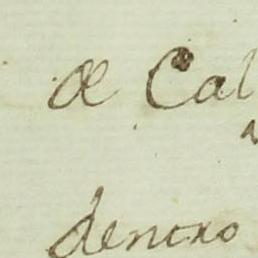 de Cal
dentro